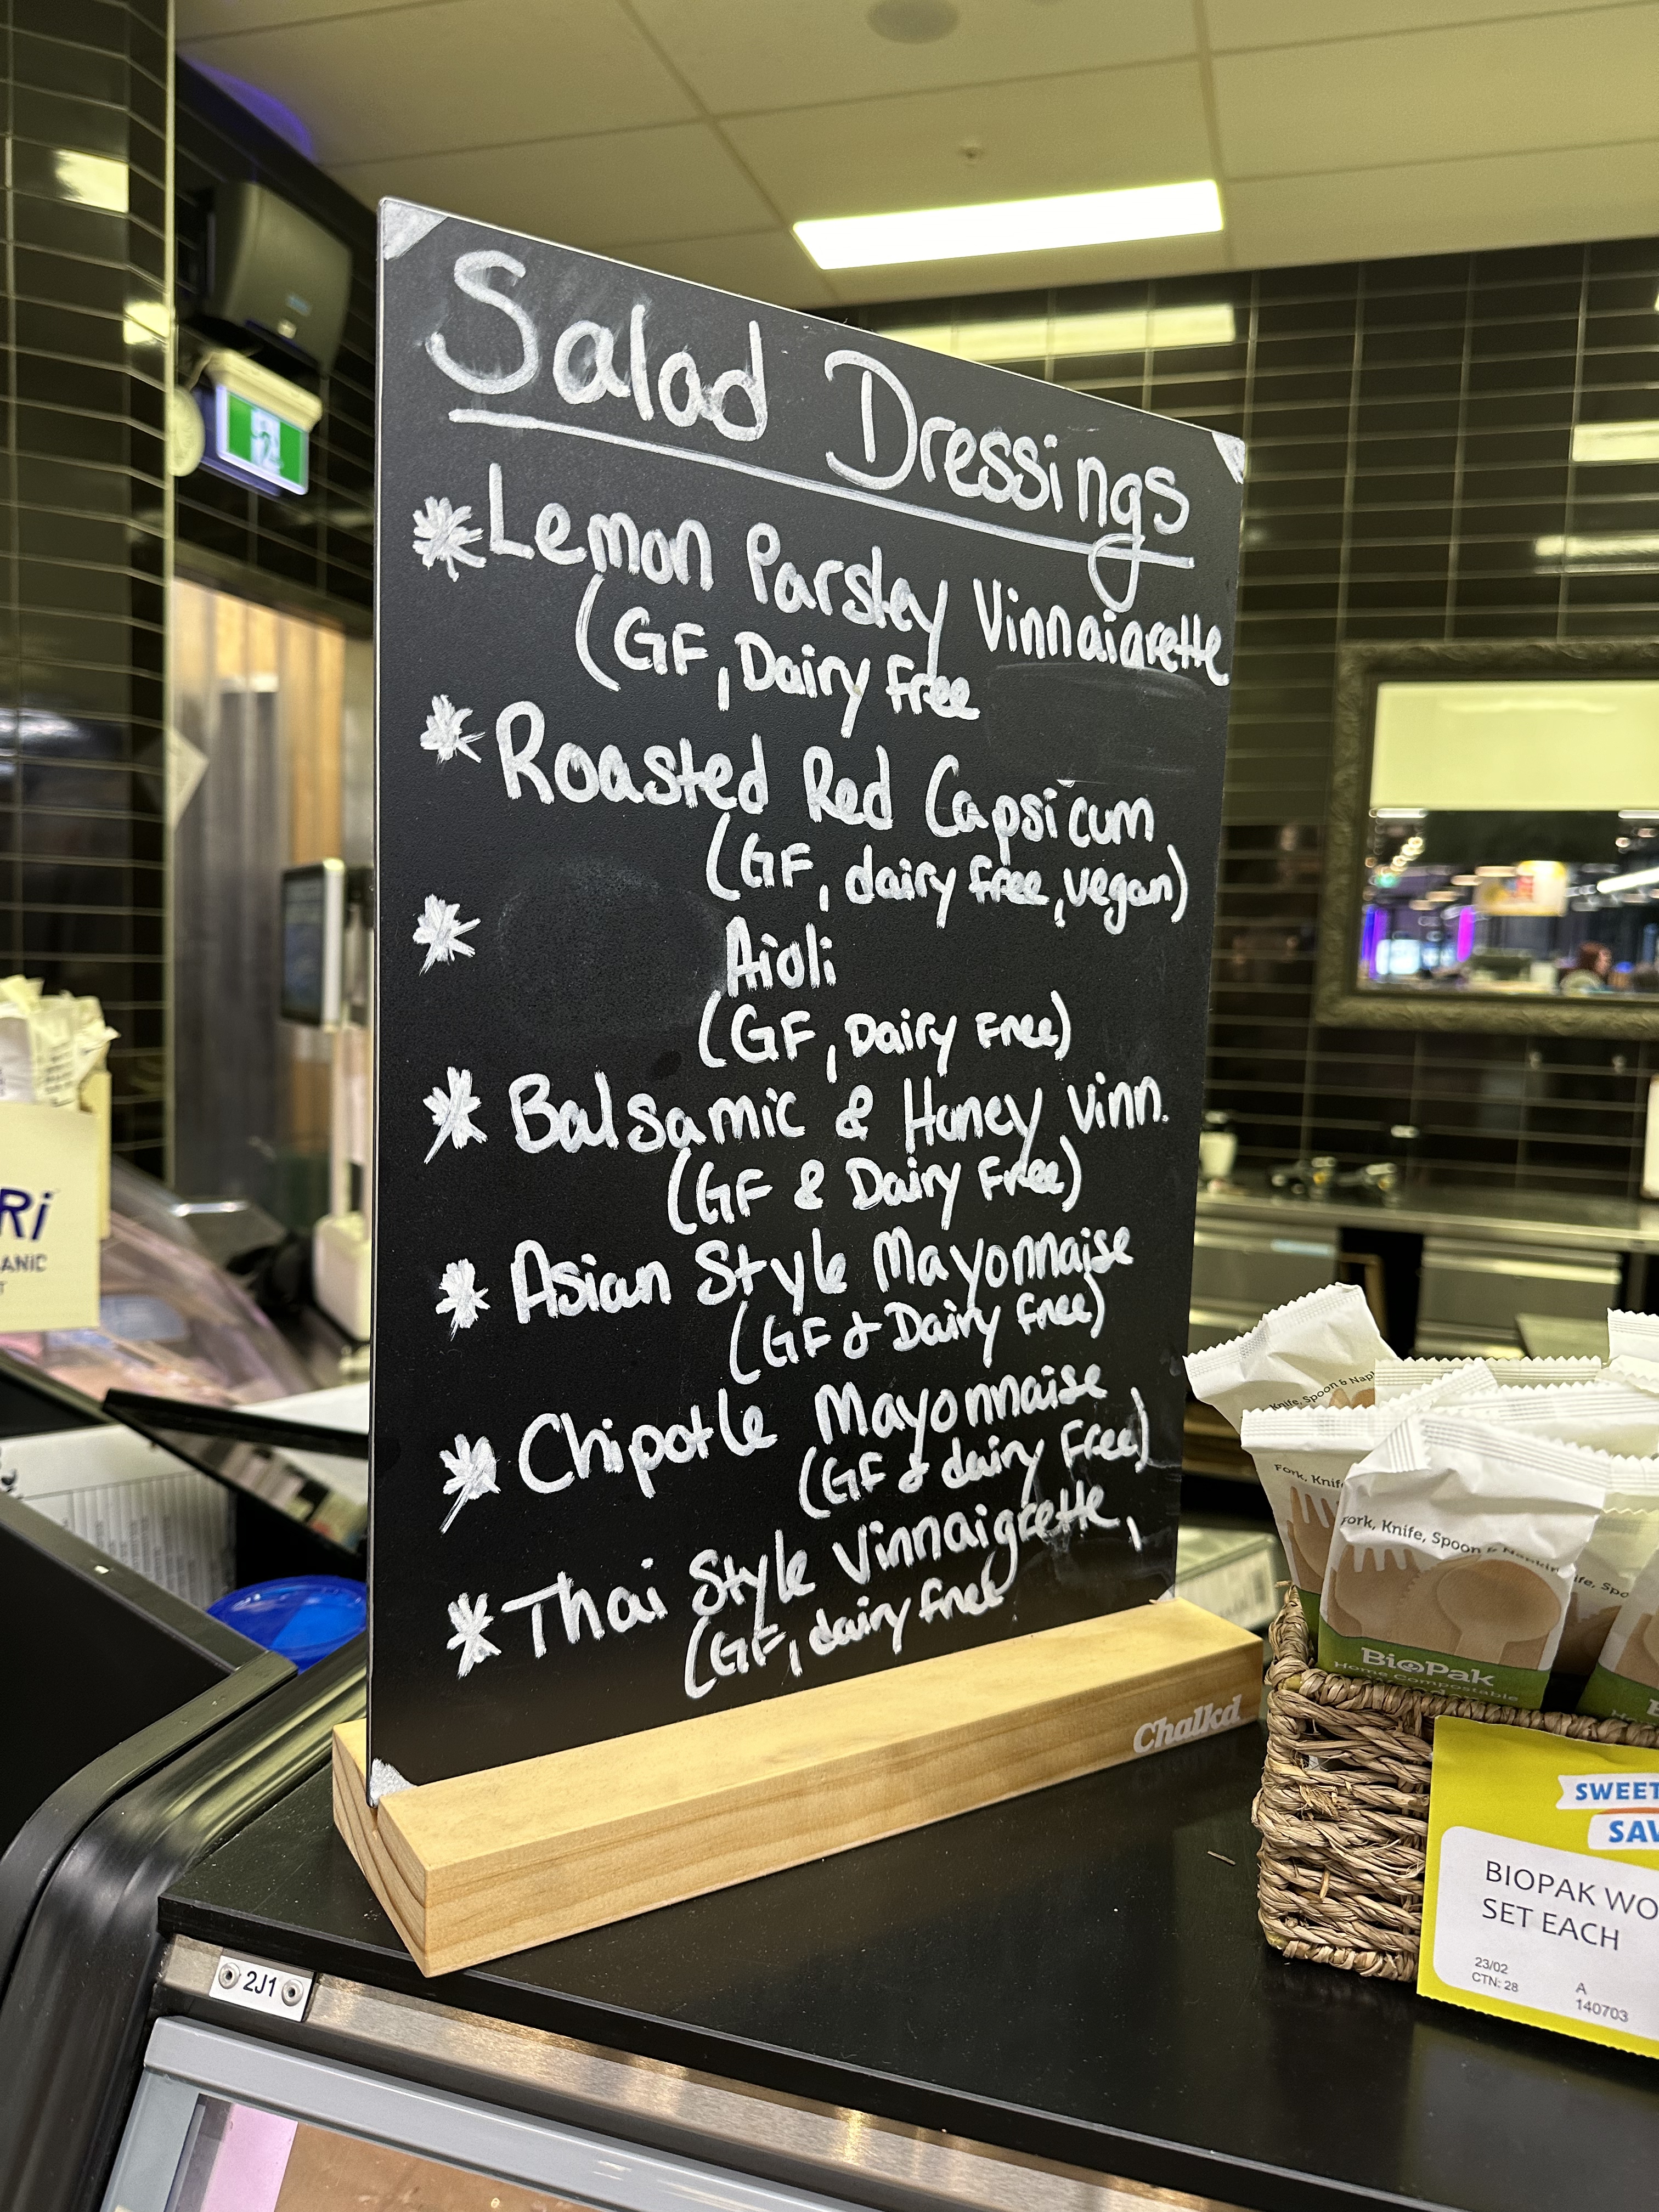 Salad Dressings
* Lemon Parsley Vinnaiarette
(GF, Dairy Free
* Roasted Red Capsicum
(GF, dairy free, vegan)
* Aioli
(GF, Dairy Free)
* Balsamic & Honey Vinn.
(GF & Dairy Free)
* Asian Style Mayonnaise
(GF & Dairy Free)
* Chipotle Mayonnaise
(GF & dairy Free)
* Thai Style Vinnaigrette,
(GF, dairy free
Chalkd
Ri
ANIC
T
2J1
Knife, Spoon & Nap
Fork, Knif
Fork, Knife, Spoon & Napkin
ife, Spo
BioPak
Home Compostable
SWEET
SAV
BIOPAK WO
SET EACH
23/02
CTN: 28
A
140703